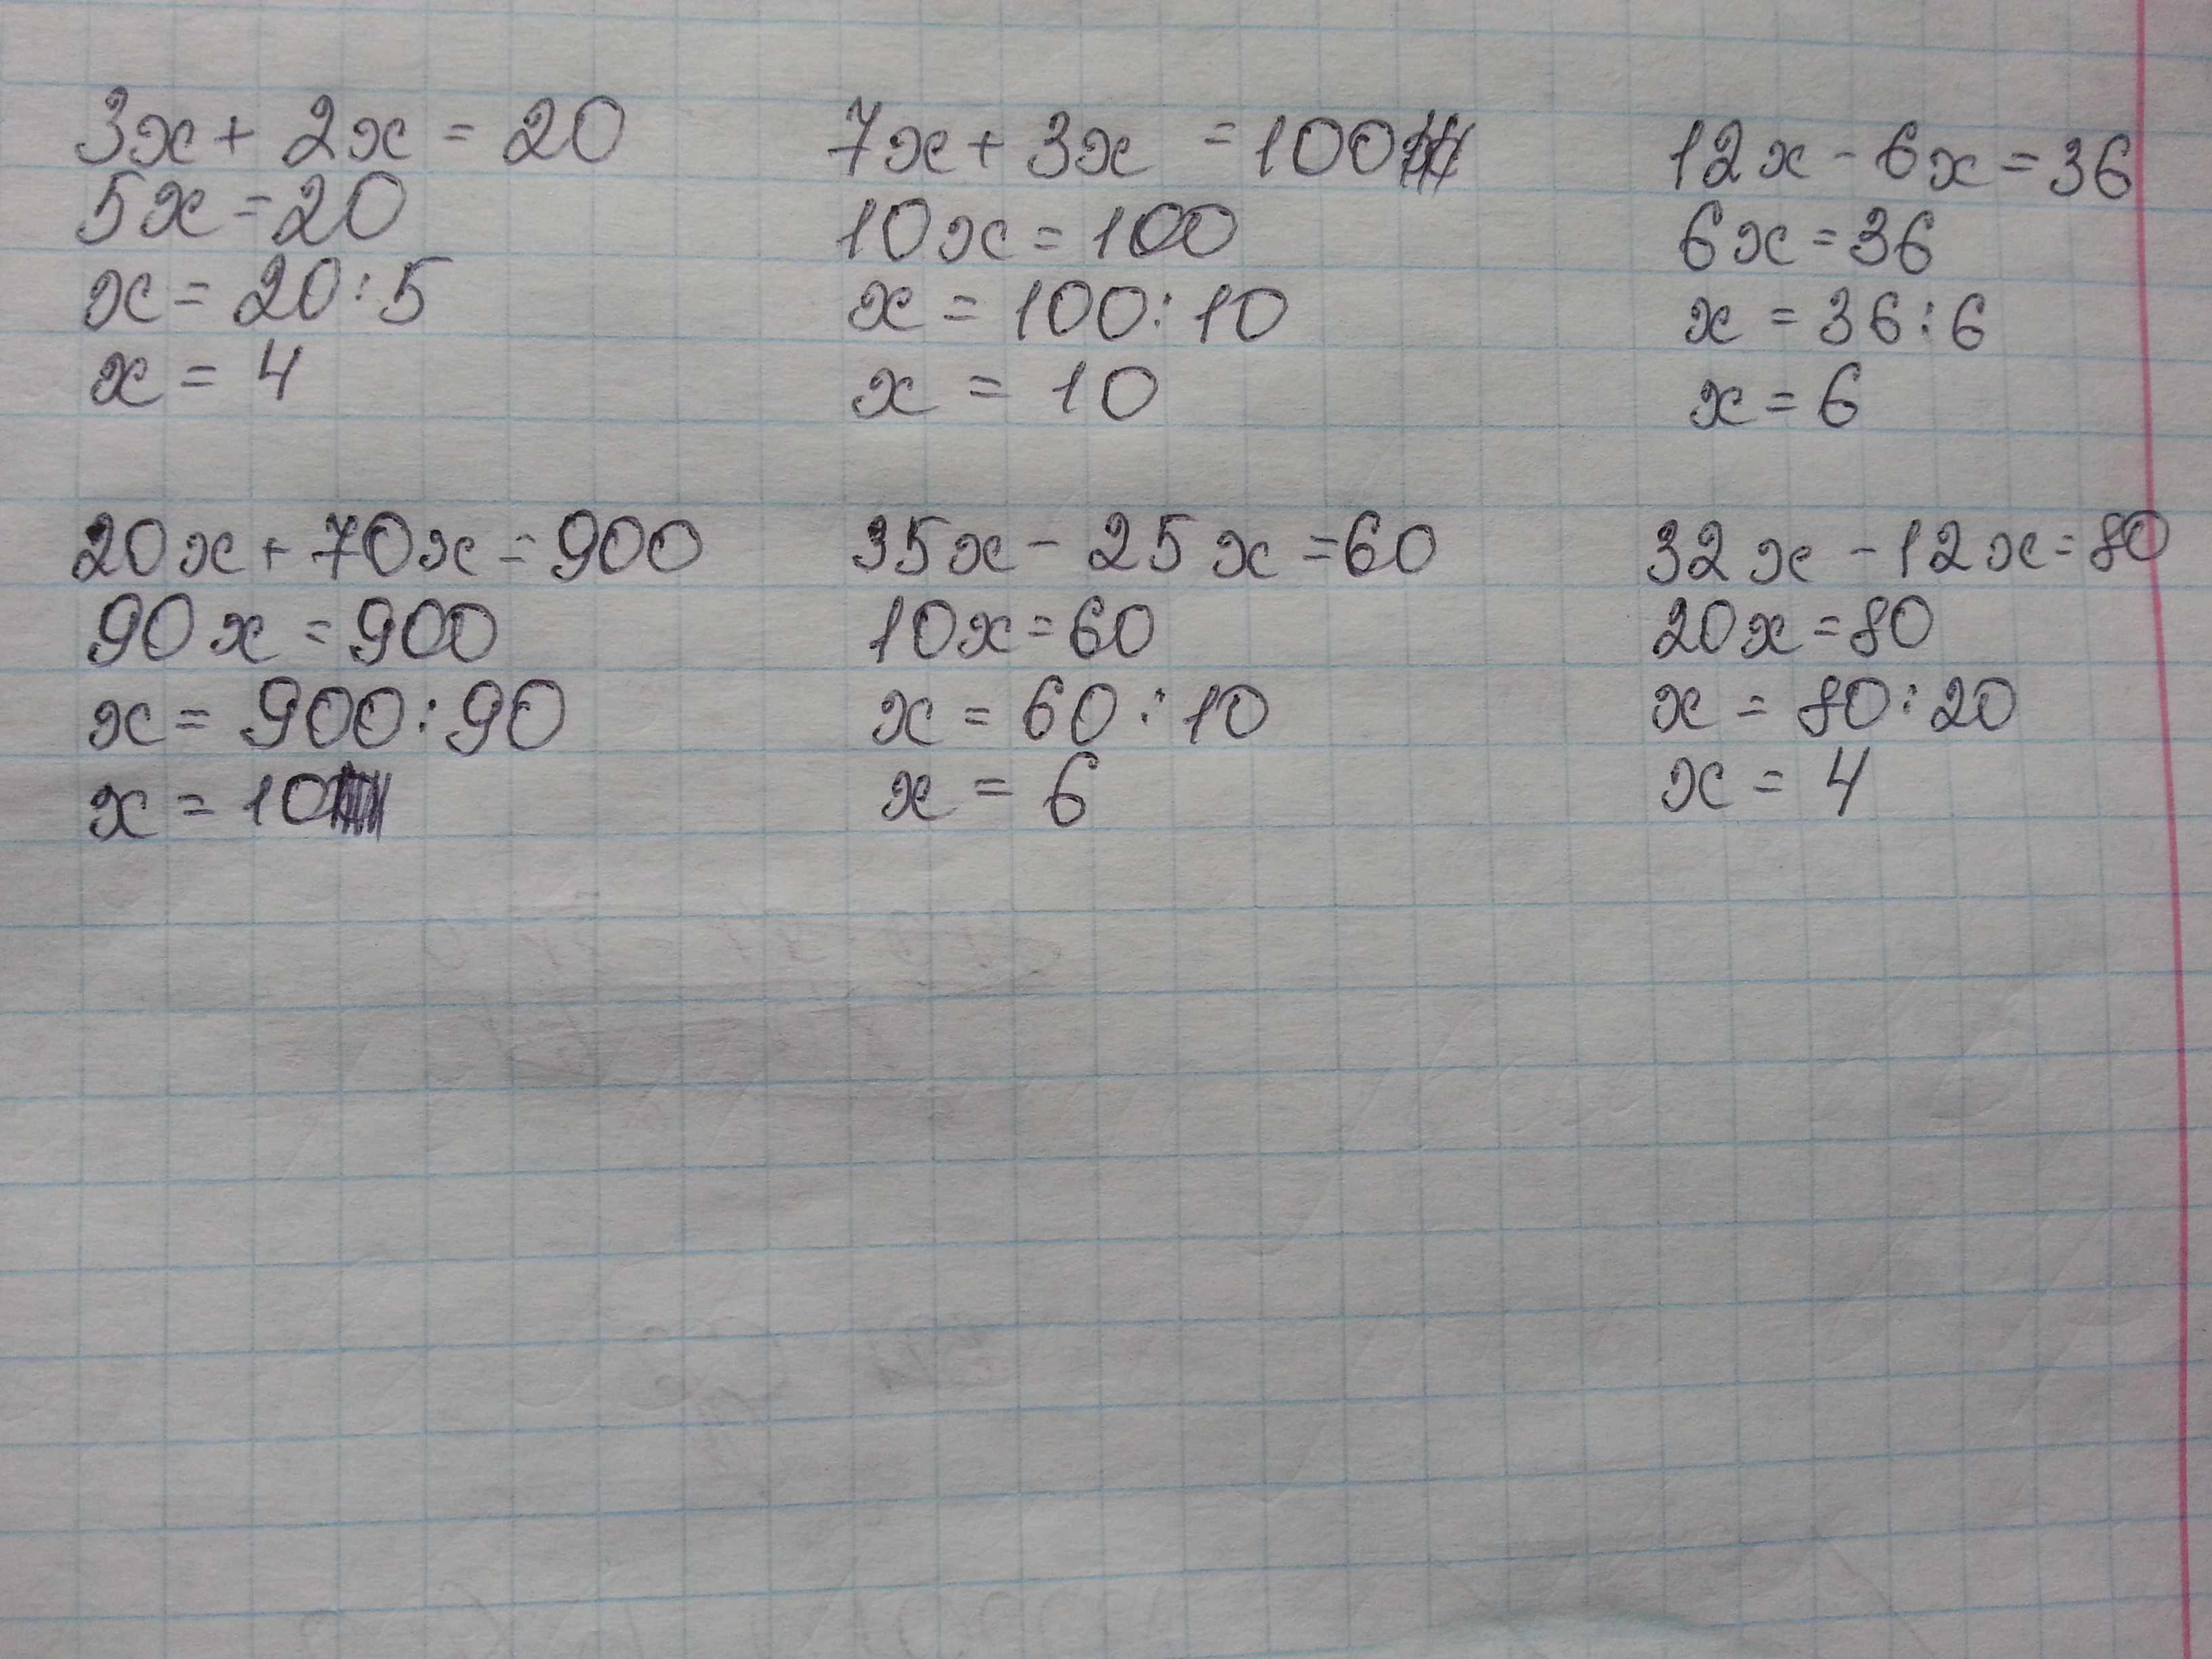 3x + 2x = 20
5x = 20
x = 20:5
x = 4
7x + 3x = 100
10x = 100
x = 100:10
x = 10
12x - 6x = 36
6x = 36
x = 36:6
x = 6
20x + 70x = 900
90x = 900
x = 900:90
x = 10
35x - 25x = 60
10x = 60
x = 60:10
x = 6
32x - 12x = 80
20x = 80
x = 80:20
x = 4